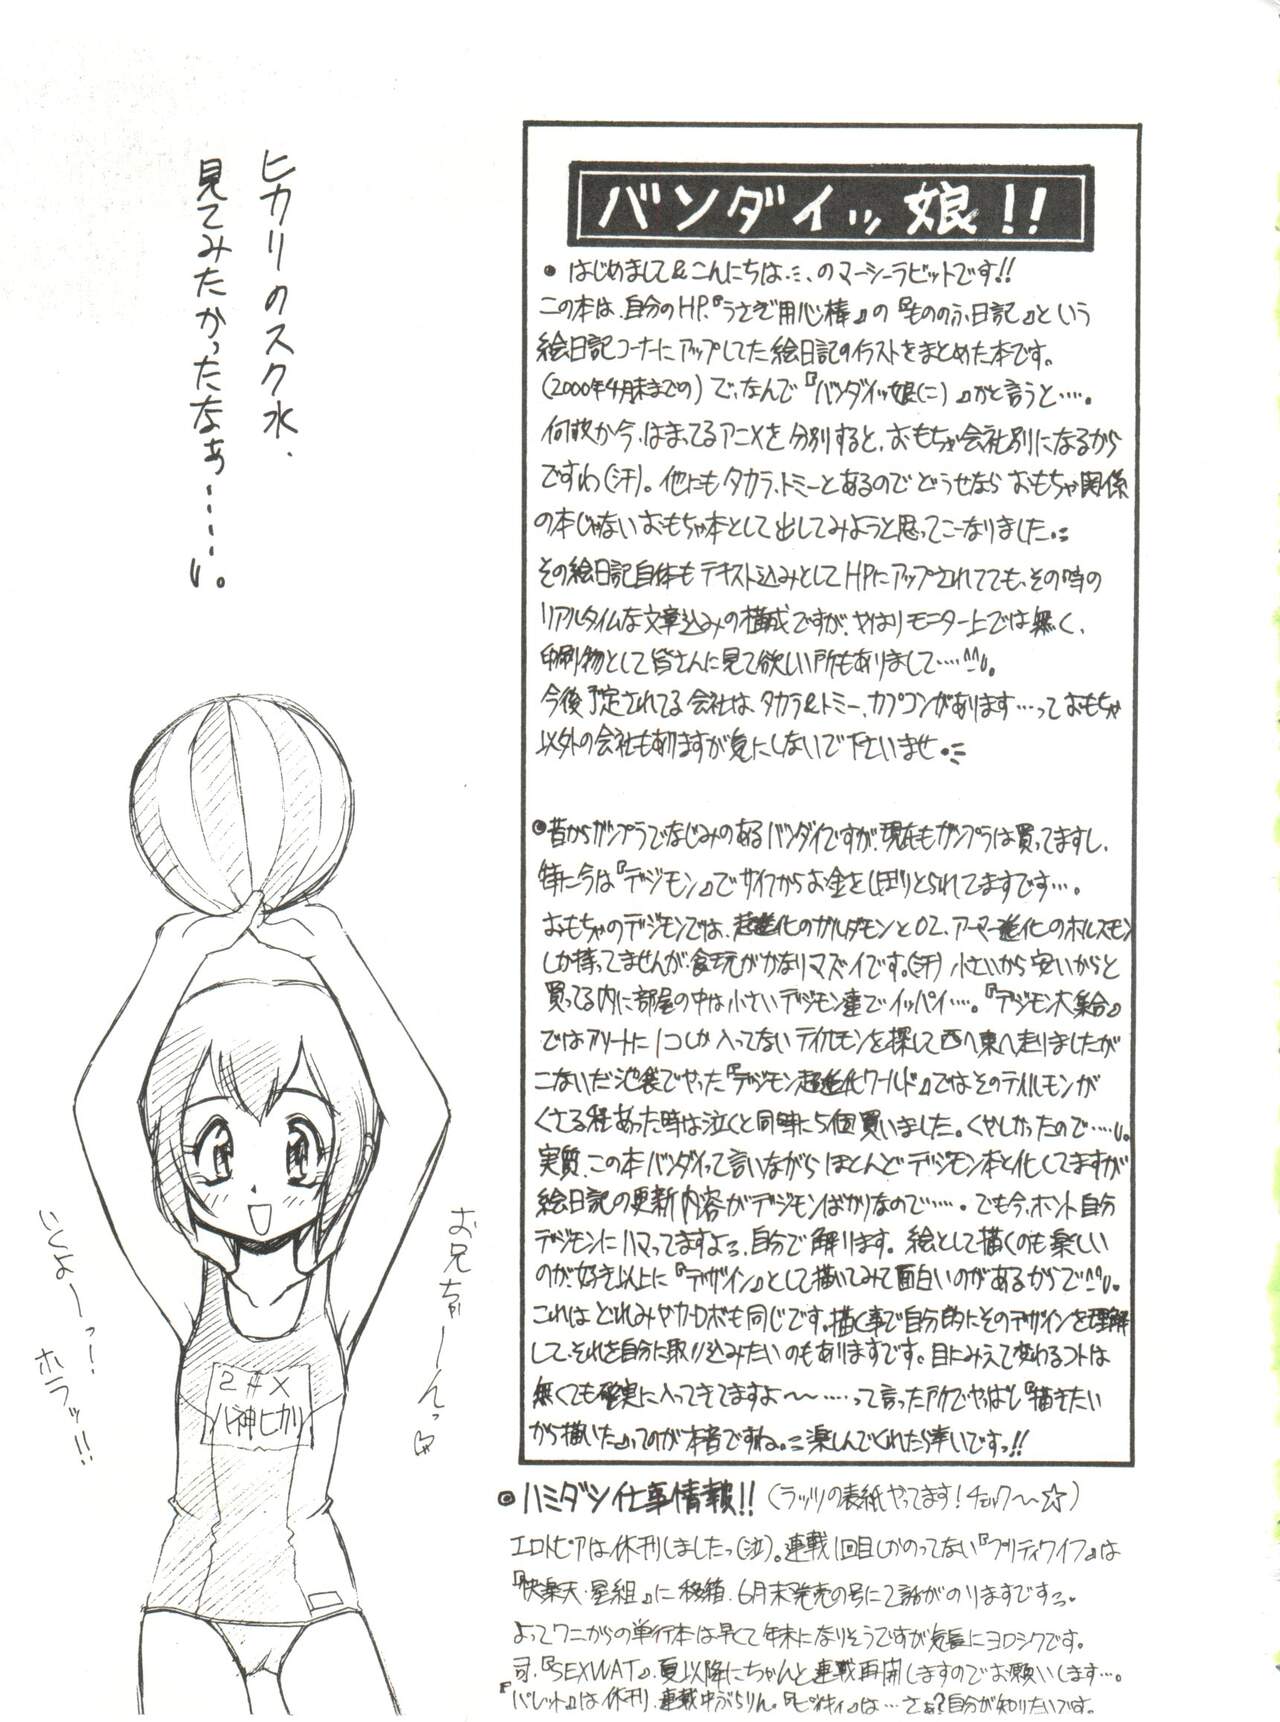 バンダイッ娘!!
● はじめまして&こんにちは・ミ、のマーシーラビットです!!
この本は、自分のHP、『うさぎ用心棒』の『もののふ日記』という
絵日記コーナーにアップしてた絵日記のイラストをまとめた本です。
(2000年4月末までの)で、なんで『バンダイッ娘(こ)』かと言うと‥‥。
何故か今、はまってるアニメを分別すると、おもちゃ会社別になるから
ですわ(汗)。他にもタカラ、トミーとあるのでどうせならおもちゃ関係
の本じゃないおもちゃ本として出してみようと思ってこーなりました
その絵日記自体もテキスト込みとしてHPにアップされてても、その時の
リアルタイムな文章込みの構成ですが、やはりモニター上では無く、
印刷物として皆さんに見て欲しい所もありまして‥‥
今後予定されてる会社は、タカラ&トミー、カプコンがあります…っておもちゃ
以外の会社もありますが気にしないで下さいませ
●昔からガンプラでなじみのあるバンダイですが、現在もガンプラは買ってますし、
特に今は『デジモン』でサイフからお金をしぼりとられてますです…。
おもちゃのデジモンでは、超進化のガルダモンと02、アーマー進化のホルスモン
しか持ってませんが、食玩がかなりマズイです。(汗)小さいから安いからと
買ってる内に部屋の中は小さいデジモン達でイッパイ‥‥。『デジモン大集合』
ではアソートに1コしか入ってないテイルモンを探して西へ東へ走りましたが
こないだ池袋でやった『デジモン超進化ワールド』ではそのテイルモンが
くさる程あった時は泣くと同時に5個買いました。くやしかったので‥‥
実質、この本バンダイって言いながらほとんどデジモン本と化してますが
絵日記の更新内容がデジモンばかりなので‥‥‥。でも今、ホント自分
デジモンにハマってますよっ、自分で解ります。絵として描くのも楽しい
のが、好き以上に『デザイン』として描いてみて面白いのがあるからで
これはどれみやカーロボも同じです。描く事で自分的にそのデザインを理解
して、それを自分に取り込みたいのもありますです。目にみえて変わるコトは
無くても確実に入ってきてますよ〜〜‥‥って言ったアケでやっぱし『描きたい
から描いた』ってのが本音ですね。楽しんでくれたら幸いですっ!!
◎ハミダシ仕事情報!!(ラッツの表紙やってます!チェック〜☆)
エロトピアは休刊しましたっ(泣)。連載1回目しかのってない『プリティワイフ』は
『快楽天・星組』に移籍、6月末発売の号に2話がのりますですっ。
よってワニからの単行本は早くて年末になりそうですが気長にヨロシクです。
司、『SEXWAT』、夏以降にちゃんと連載再開しますのでお願いします…。
『パレット』は休刊、連載中ぶらりん。『ピンキィ』は…さぁ?自分が知りたいです。
ヒカリのスク水、
見てみたかったなぁ‥‥‥。
お兄ちゃーんっ♡
いくよーっ!
ホラッ!!
2年X
八神ヒカリ